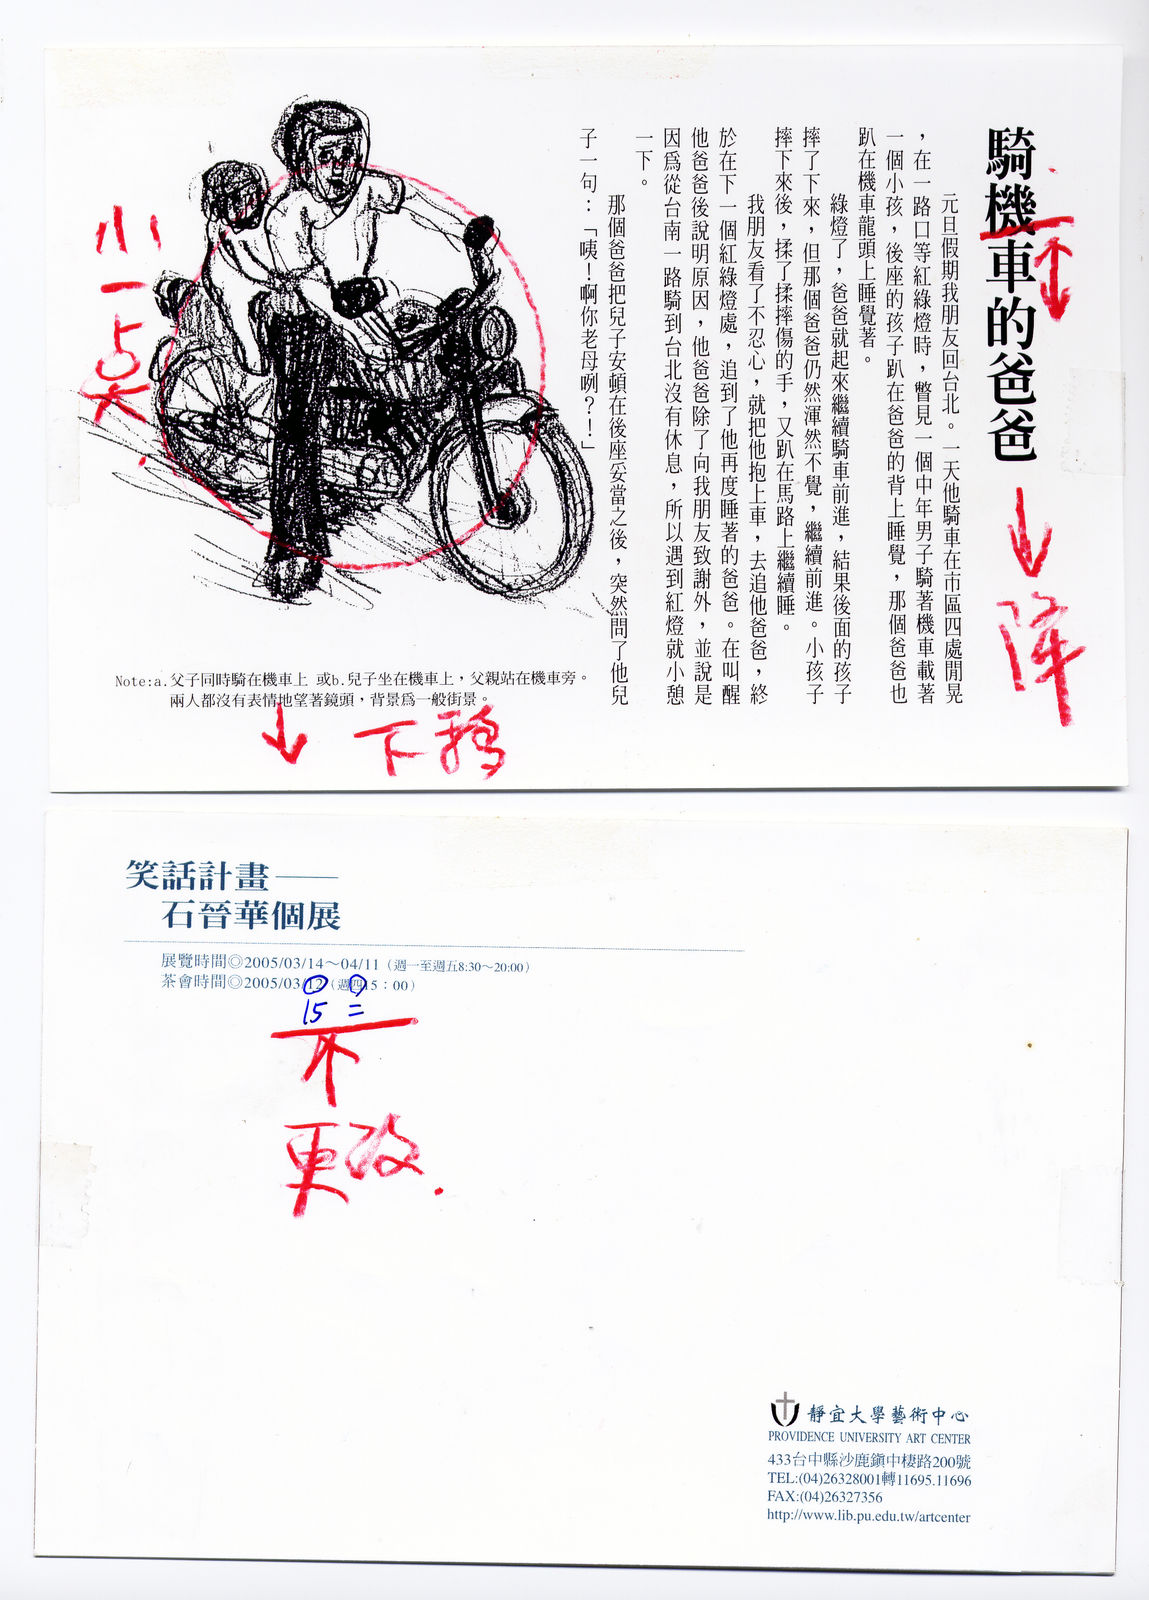 騎機車的爸爸
元旦假期我朋友回台北。一天他騎車在市區四處閒晃
，在一路口等紅綠燈時，瞥見一個中年男子騎著機車載著
一個小孩，後座的孩子趴在爸爸的背上睡覺，那個爸爸也
趴在機車龍頭上睡覺著。
綠燈了，爸爸就起來繼續騎車前進，結果後面的孩子
摔了下來，但那個爸爸仍然渾然不覺，繼續前進。小孩子
摔下來後，揉了揉摔傷的手，又趴在馬路上繼續睡。
我朋友看了不忍心，就把他抱上車，去追他爸爸，終
於在下一個紅綠燈處，追到了他再度睡著的爸爸。在叫醒
他爸爸後說明原因，他爸爸除了向我朋友致謝外，並說是
因爲從台南一路騎到台北沒有休息，所以遇到紅燈就小憩
一下。
那個爸爸把兒子安頓在後座妥當之後，突然問了他兒
子一句：「咦！啊你老母咧？！」
小一点
降
Note:a.父子同時騎在機車上 或b.兒子坐在機車上，父親站在機車旁。
兩人都沒有表情地望著鏡頭，背景爲一般街景。
下
笑話計畫——
石晉華個展
展覽時間◎2005/03/14～04/11（週一至週五8:30～20:00）
茶會時間◎2005/03/12（週四15：00）
15 二
更改.
靜宜大學藝術中心
PROVIDENCE UNIVERSITY ART CENTER
433台中縣沙鹿鎭中棲路200號
TEL:(04)26328001轉11695.11696
FAX:(04)26327356
http://www.lib.pu.edu.tw/artcenter